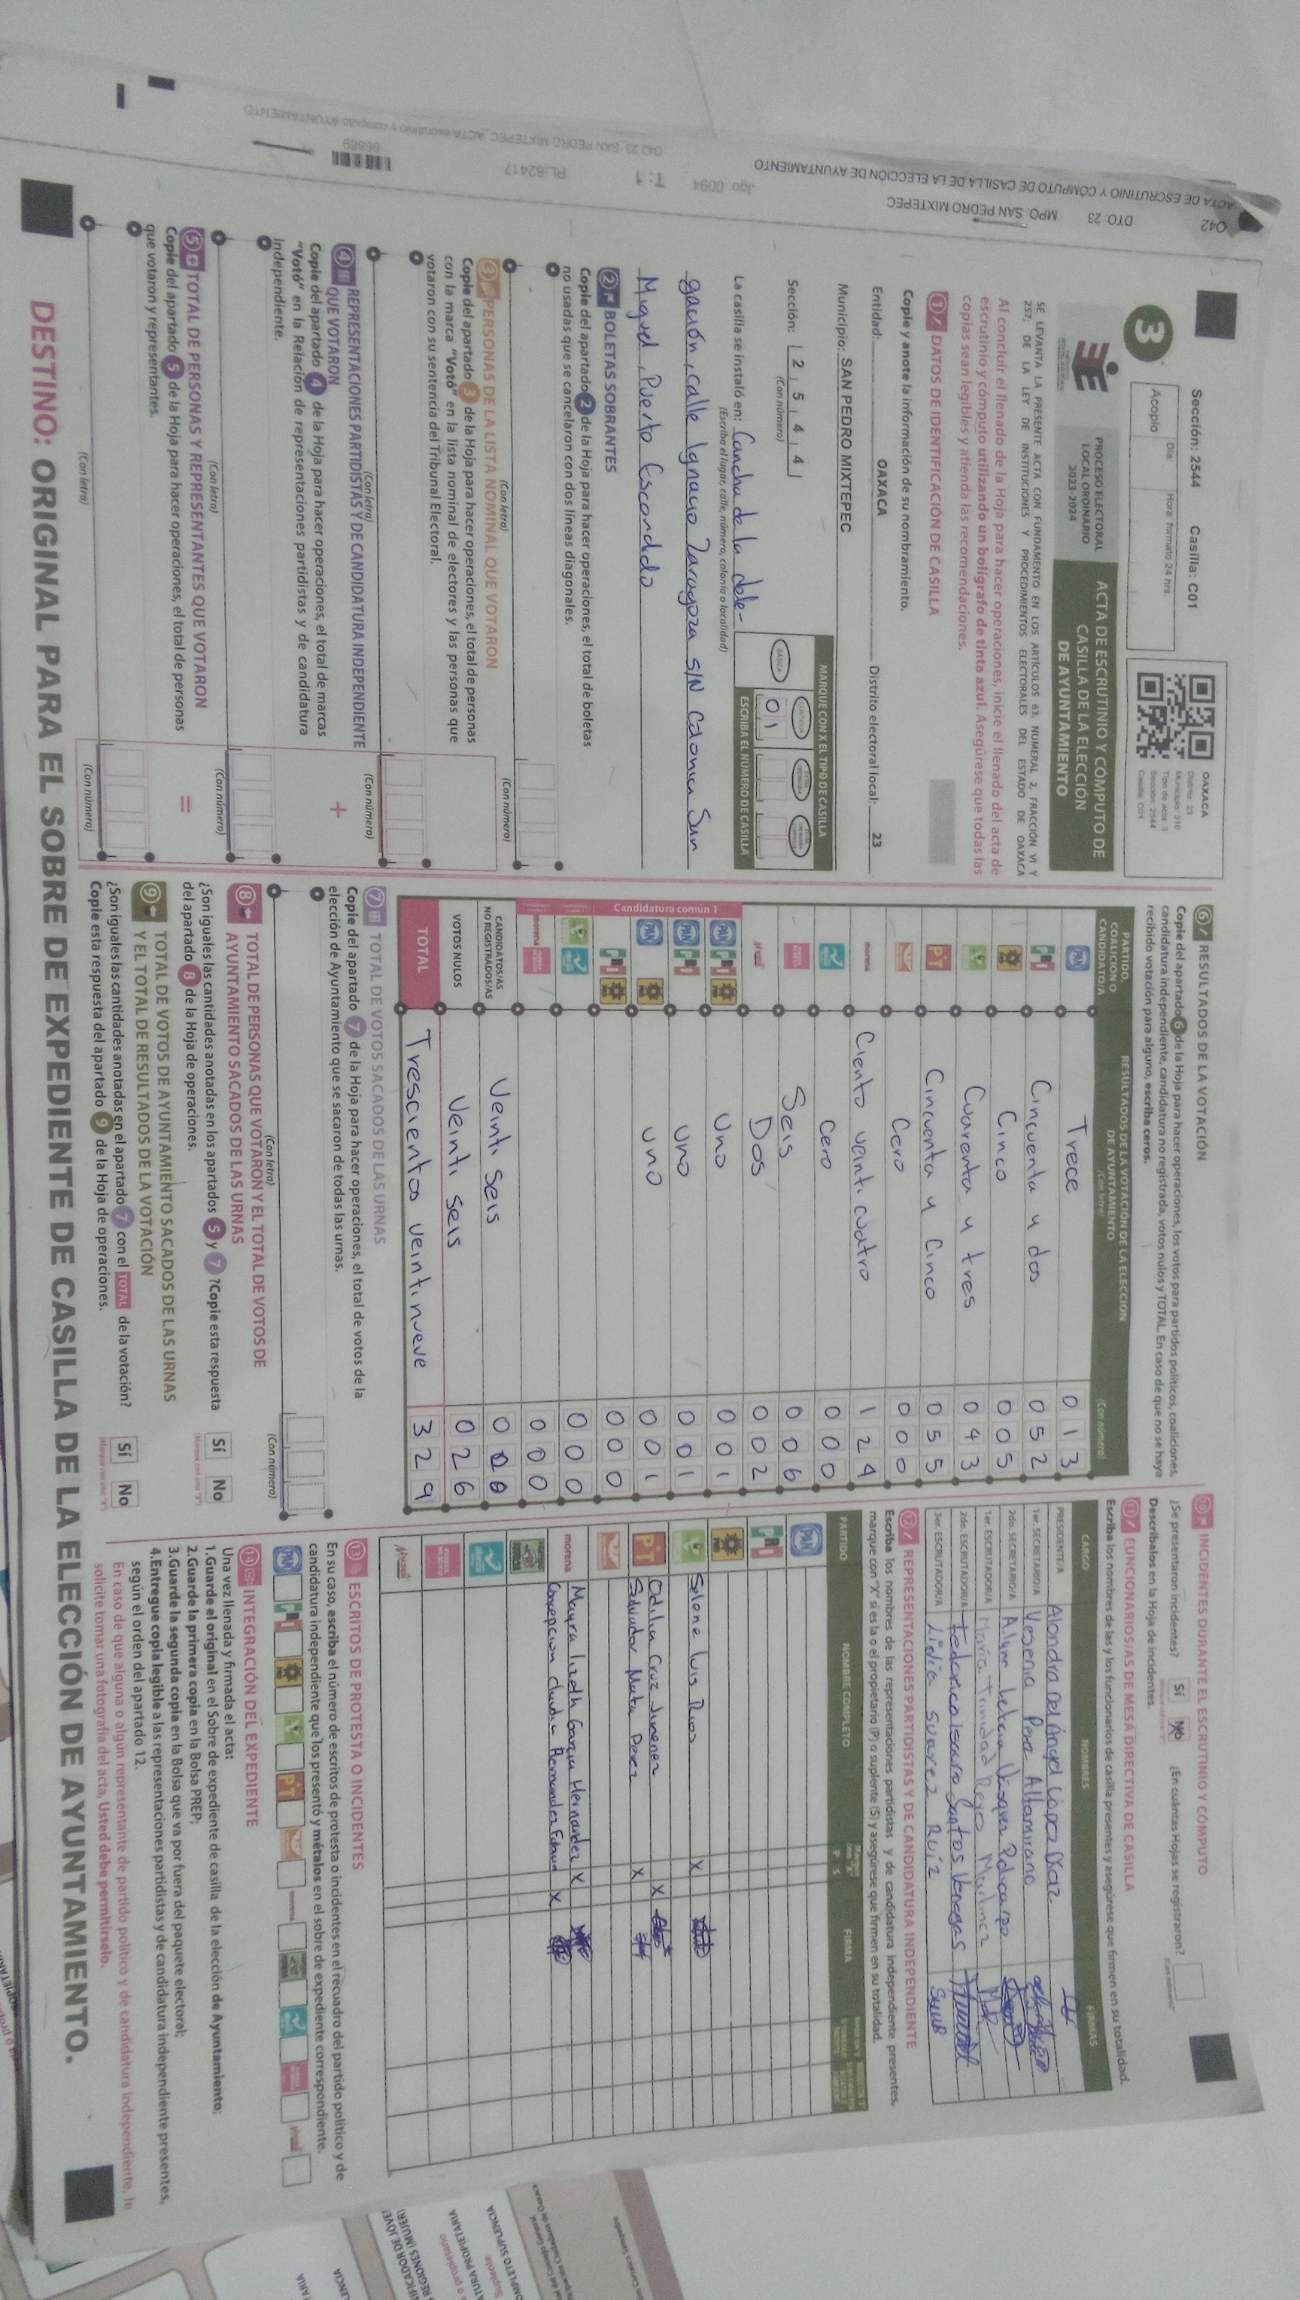 042 DTO. 23 MPO. SAN PEDRO MIXTEPEC
ACTA DE ESCRUTINIO Y CÓMPUTO DE CASILLA DE LA ELECCIÓN DE AYUNTAMIENTO
Jgo. 0094 T: 1 PL:82417
Sección: 2544 Casilla: C01
3
Acopio
Día Hora: formato 24 hrs.
OAXACA
PROCESO ELECTORAL
LOCAL ORDINARIO
2023-2024
ACTA DE ESCRUTINIO Y CÓMPUTO DE
CASILLA DE LA ELECCIÓN
DE AYUNTAMIENTO
SE LEVANTA LA PRESENTE ACTA CON FUNDAMENTO EN LOS ARTÍCULOS 63, NUMERAL 2, FRACCIÓN VI Y
257, DE LA LEY DE INSTITUCIONES Y PROCEDIMIENTOS ELECTORALES DEL ESTADO DE OAXACA
Al concluir el llenado de la Hoja para hacer operaciones, inicie el llenado del acta de
escrutinio y cómputo utilizando un bolígrafo de tinta azul. Asegúrese que todas las
copias sean legibles y atienda las recomendaciones.
1 DATOS DE IDENTIFICACIÓN DE CASILLA
Copie y anote la información de su nombramiento.
Entidad: OAXACA Distrito electoral local: 23
Municipio: SAN PEDRO MIXTEPEC
Sección: 2 5 4 4
(Con número)
MARQUE CON X EL TIPO DE CASILLA
BÁSICA
0 1
ESCRIBA EL NÚMERO DE CASILLA
La casilla se instaló en: Cancha de la dele-
(Escriba el lugar, calle, número, colonia o localidad)
gación, calle Ignacio Zaragoza S/N Colonia San
Miguel, Puerto Escondido
2 BOLETAS SOBRANTES
Copie del apartado 2 de la Hoja para hacer operaciones, el total de boletas
no usadas que se cancelaron con dos líneas diagonales.
(Con letra) (Con número)
3 PERSONAS DE LA LISTA NOMINAL QUE VOTARON
Copie del apartado 3 de la Hoja para hacer operaciones, el total de personas
con la marca "Votó" en la lista nominal de electores y las personas que
votaron con su sentencia del Tribunal Electoral.
(Con letra) (Con número)
4 REPRESENTACIONES PARTIDISTAS Y DE CANDIDATURA INDEPENDIENTE
QUE VOTARON
Copie del apartado 4 de la Hoja para hacer operaciones, el total de marcas
"Votó" en la Relación de representaciones partidistas y de candidatura
independiente.
+
(Con letra) (Con número)
5 TOTAL DE PERSONAS Y REPRESENTANTES QUE VOTARON
Copie del apartado 5 de la Hoja para hacer operaciones, el total de personas
que votaron y representantes.
=
(Con letra) (Con número)
6 RESULTADOS DE LA VOTACIÓN
Copie del apartado 6 de la Hoja para hacer operaciones, los votos para partidos políticos, coaliciones,
candidatura independiente, candidatura no registrada, votos nulos y TOTAL. En caso de que no se haya
recibido votación para alguno, escriba ceros.
PARTIDO, COALICIÓN O CANDIDATO/A
RESULTADOS DE LA VOTACIÓN DE LA ELECCIÓN
DE AYUNTAMIENTO
(Con letra) (Con número)
PAN Trece 0 1 3
PRI Cincuenta y dos 0 5 2
PRD Cinco 0 0 5
Cuarenta y tres 0 4 3
PT Cincuenta y Cinco 0 5 5
Cero 0 0 0
morena Ciento veinti cuatro 1 2 4
Cero 0 0 0
Seis 0 0 6
Dos 0 0 2
Candidatura común 1
PAN PRI PRD Uno 0 0 1
PAN PRI Uno 0 0 1
PAN PRD uno 0 0 1
PRI PRD 0 0 0
0 0 0
morena 0 0 0
CANDIDATOS/AS
NO REGISTRADOS/AS Veinti seis
VOTOS NULOS Veinti seis 0 2 6
TOTAL Trescientos veintinueve 3 2 9
7 TOTAL DE VOTOS SACADOS DE LAS URNAS
Copie del apartado 7 de la Hoja para hacer operaciones, el total de votos de la
elección de Ayuntamiento que se sacaron de todas las urnas.
(Con letra) (Con número)
8 TOTAL DE PERSONAS QUE VOTARON Y EL TOTAL DE VOTOS DE
AYUNTAMIENTO SACADOS DE LAS URNAS
¿Son iguales las cantidades anotadas en los apartados 5 y 7 ?Copie esta respuesta
del apartado 8 de la Hoja de operaciones.
Sí No
9 TOTAL DE VOTOS DE AYUNTAMIENTO SACADOS DE LAS URNAS
Y EL TOTAL DE RESULTADOS DE LA VOTACIÓN
¿Son iguales las cantidades anotadas en el apartado 7 con el TOTAL de la votación?
Copie esta respuesta del apartado 9 de la Hoja de operaciones.
Sí No
10 INCIDENTES DURANTE EL ESCRUTINIO Y CÓMPUTO
¿Se presentaron incidentes? Sí No ¿En cuántas Hojas se registraron?
Descríbalos en la Hoja de incidentes.
11 FUNCIONARIOS/AS DE MESA DIRECTIVA DE CASILLA
Escriba los nombres de las y los funcionarios de casilla presentes y asegúrese que firmen en su totalidad.
CARGO NOMBRES FIRMAS
PRESIDENTE/A Alondra Del Ángel López Díaz
1er. SECRETARIO/A Yesenia Paz Altamirano
2do. SECRETARIO/A
1er. ESCRUTADOR/A María Trinidad Reyo
2do. ESCRUTADOR/A Federico Isauro Santos Venegas
3er. ESCRUTADOR/A Lidia Suarez Ruiz
12 REPRESENTACIONES PARTIDISTAS Y DE CANDIDATURA INDEPENDIENTE
Escriba los nombres de las representaciones partidistas y de candidatura independiente presentes,
marque con "X" si es la o el propietario (P) o suplente (S) y asegúrese que firmen en su totalidad.
PARTIDO NOMBRE COMPLETO P S FIRMA
PAN
PRI
PRD
Luis Rios X
PT Odilia Cruz Jimenez X
Salvador Mata Perez X
morena Mayra lizeth Garcia Hernandez X
Concepcion X
13 ESCRITOS DE PROTESTA O INCIDENTES
En su caso, escriba el número de escritos de protesta o incidentes en el recuadro del partido político y de
candidatura independiente que los presentó y métalos en el sobre de expediente correspondiente.
14 INTEGRACIÓN DEL EXPEDIENTE
Una vez llenada y firmada el acta:
1.Guarde el original en el Sobre de expediente de casilla de la elección de Ayuntamiento;
2.Guarde la primera copia en la Bolsa PREP;
3.Guarde la segunda copia en la Bolsa que va por fuera del paquete electoral;
4.Entregue copia legible a las representaciones partidistas y de candidatura independiente presentes,
según el orden del apartado 12.
En caso de que alguna o algún representante de partido político y de candidatura independiente, le
solicite tomar una fotografía del acta, Usted debe permitírselo.
DESTINO: ORIGINAL PARA EL SOBRE DE EXPEDIENTE DE CASILLA DE LA ELECCIÓN DE AYUNTAMIENTO.